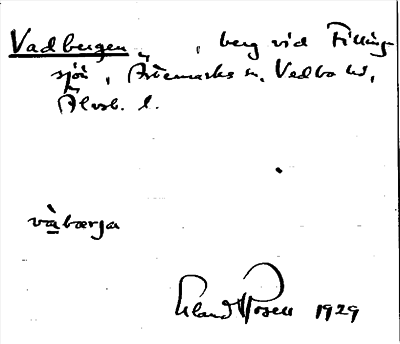 Vadbergen, berg vid Tillings
sjö, Ärtemarks sn. Vedbo hd,
Älvsb. l.
vàbærja
Erland Rosell 1929